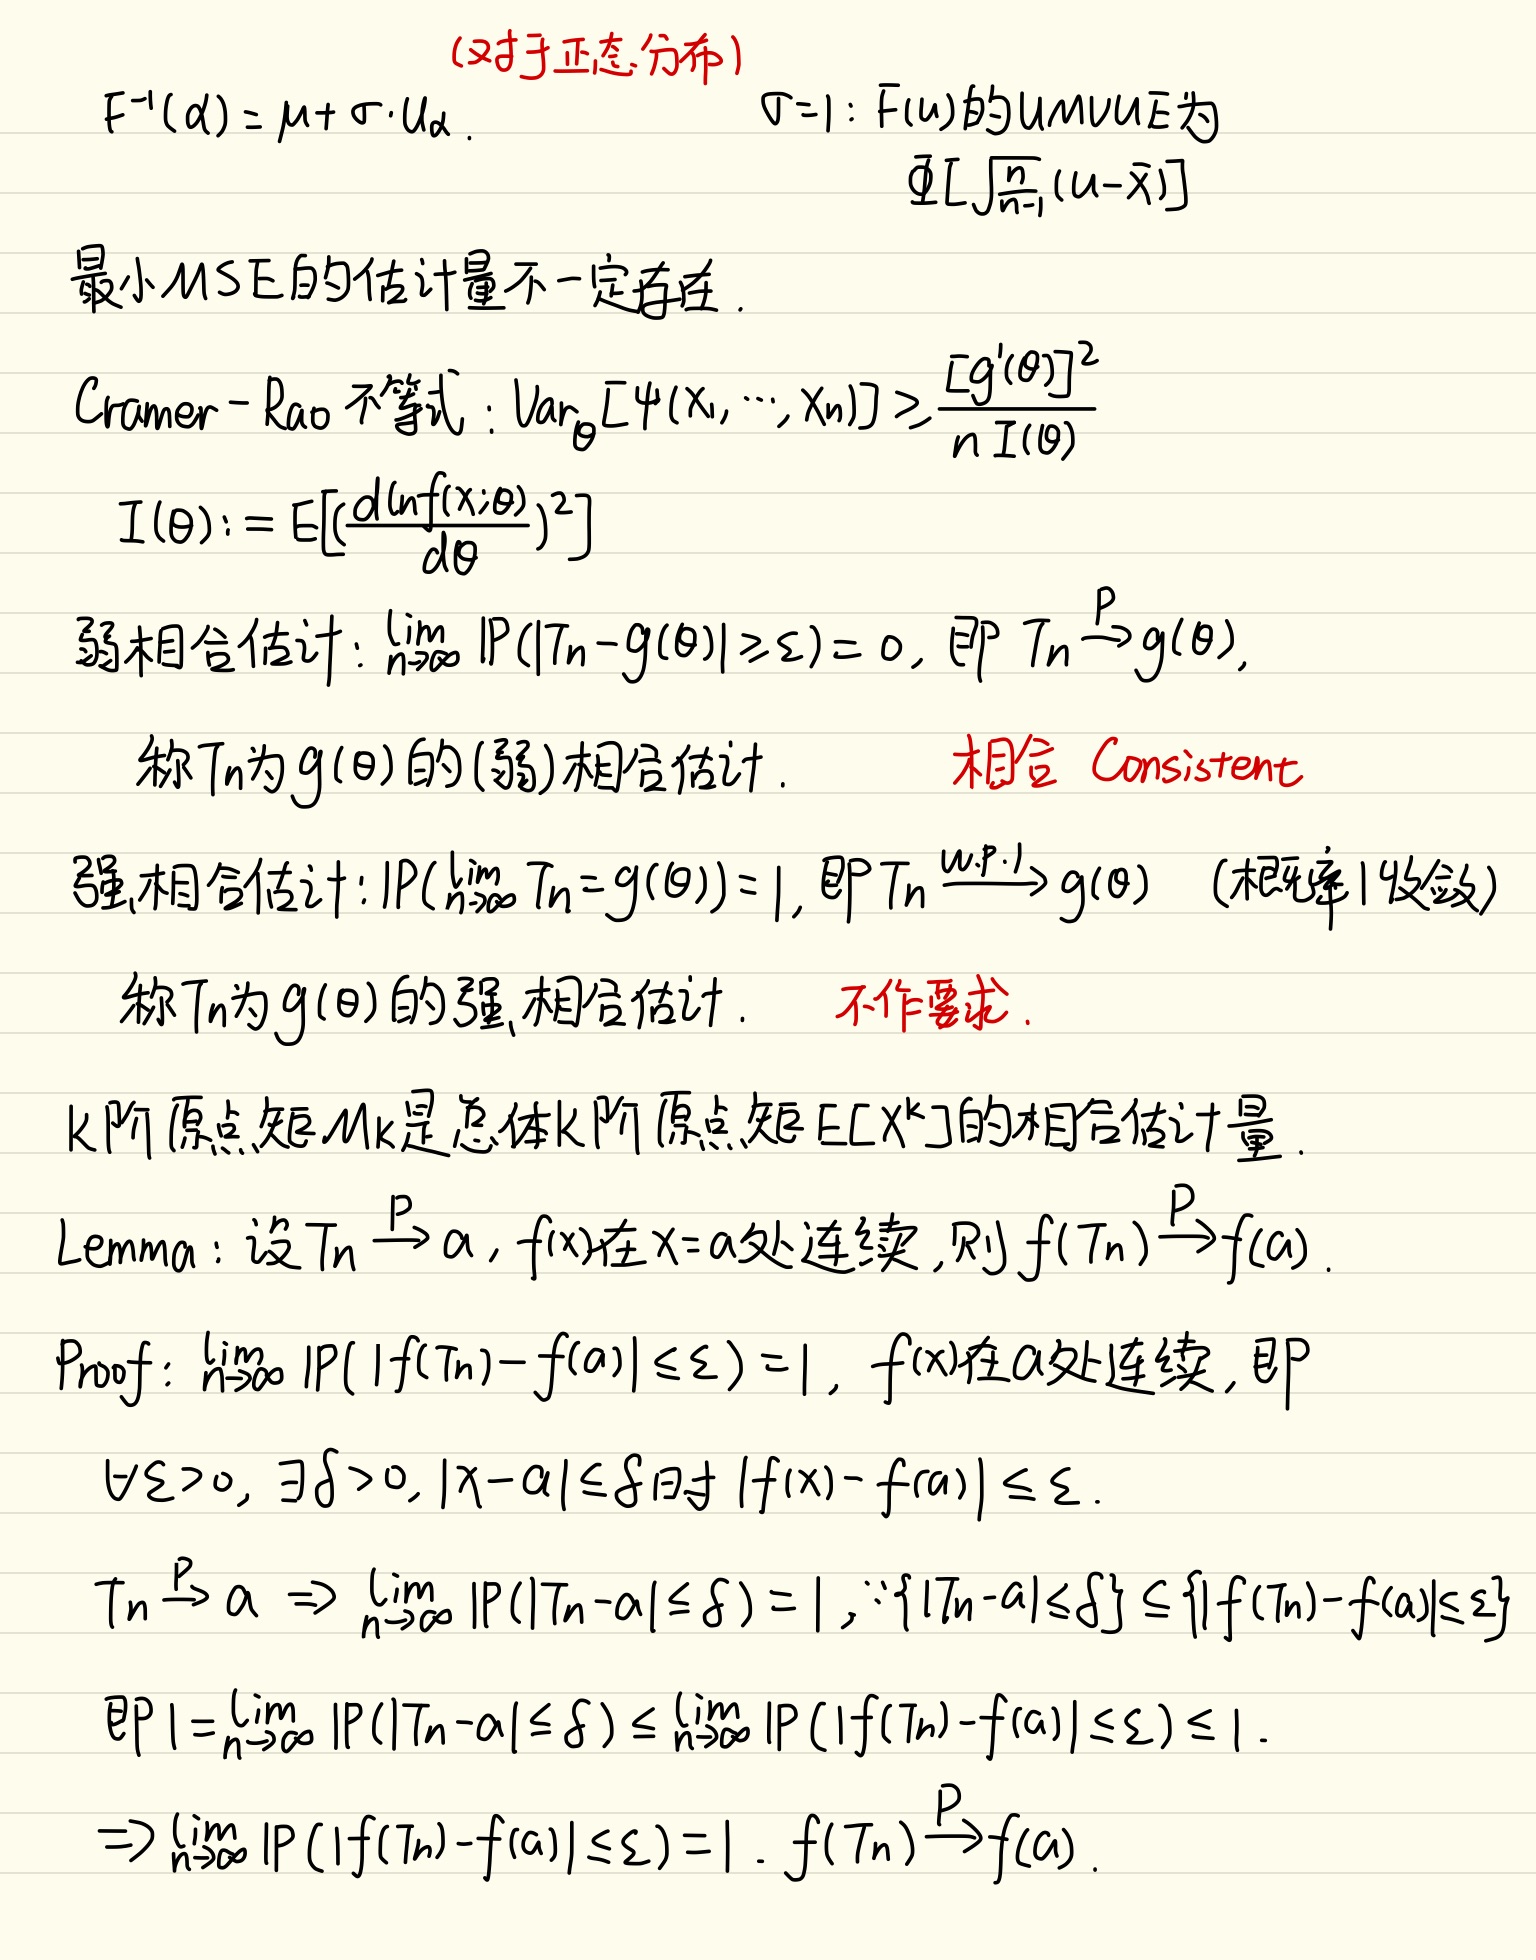 (对于正态分布)
F⁻¹(α) = μ + σ·Uα. σ=1: F(u)的UMVUE为
Φ[√(n/(n-1)) (u-x̄)]
最小MSE的估计量不一定存在.
Cramer-Rao 不等式: Varθ[ψ(X₁,…,Xn)] ≥ [g'(θ)]² / (n I(θ))
I(θ) := E[(d ln f(x;θ) / dθ)²]
弱相合估计: lim n→∞ P(|Tn-g(θ)|≥ε)=0, 即 Tn →ᴾ g(θ),
称Tn为g(θ)的(弱)相合估计. 相合 Consistent
强相合估计: P(lim n→∞ Tn=g(θ))=1, 即Tn →ʷ·ᵖ·¹ g(θ) (概率1收敛)
称Tn为g(θ)的强相合估计. 不作要求.
k阶原点矩Mk是总体k阶原点矩E[Xᵏ]的相合估计量.
Lemma: 设Tn →ᴾ a, f(x)在x=a处连续,则f(Tn) →ᴾ f(a).
Proof: lim n→∞ P(|f(Tn)-f(a)|≤ε)=1, f(x)在a处连续,即
∀ε>0, ∃δ>0, |x-a|≤δ时 |f(x)-f(a)|≤ε.
Tn →ᴾ a ⇒ lim n→∞ P(|Tn-a|≤δ)=1, ∵{|Tn-a|≤δ}≤{|f(Tn)-f(a)|≤ε}
即1=lim n→∞ P(|Tn-a|≤δ) ≤ lim n→∞ P(|f(Tn)-f(a)|≤ε) ≤ 1.
⇒ lim n→∞ P(|f(Tn)-f(a)|≤ε)=1. f(Tn) →ᴾ f(a).